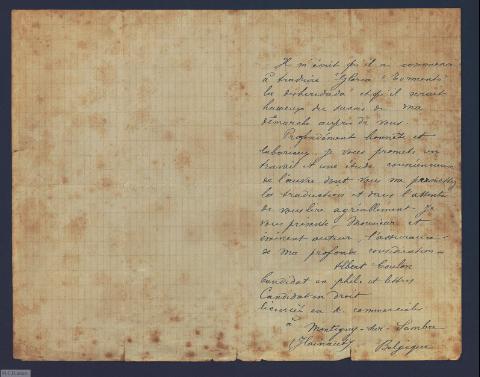 Il m'écrit qu'il a commencé
à traduire "Gloria" "Tormento"
"La desheredada" et qu'il serait
heureux du succès de ma
démarche auprès de vous.
Profondément honnête et
laborieux, je vous promets un
travail et une étude consciencieuse
de l'œuvre dont vous me permettez
la traduction et dans l'attente
de vous lire agréablement je
vous présente, Monsieur et
éminent auteur, l'assurance
de ma profonde considération
Albert Coulon
Candidat en phil. et lettres
Candidat en Droit
licencié en commerciales
à Montigny-sur-Sambre
(Hainaut) Belgique